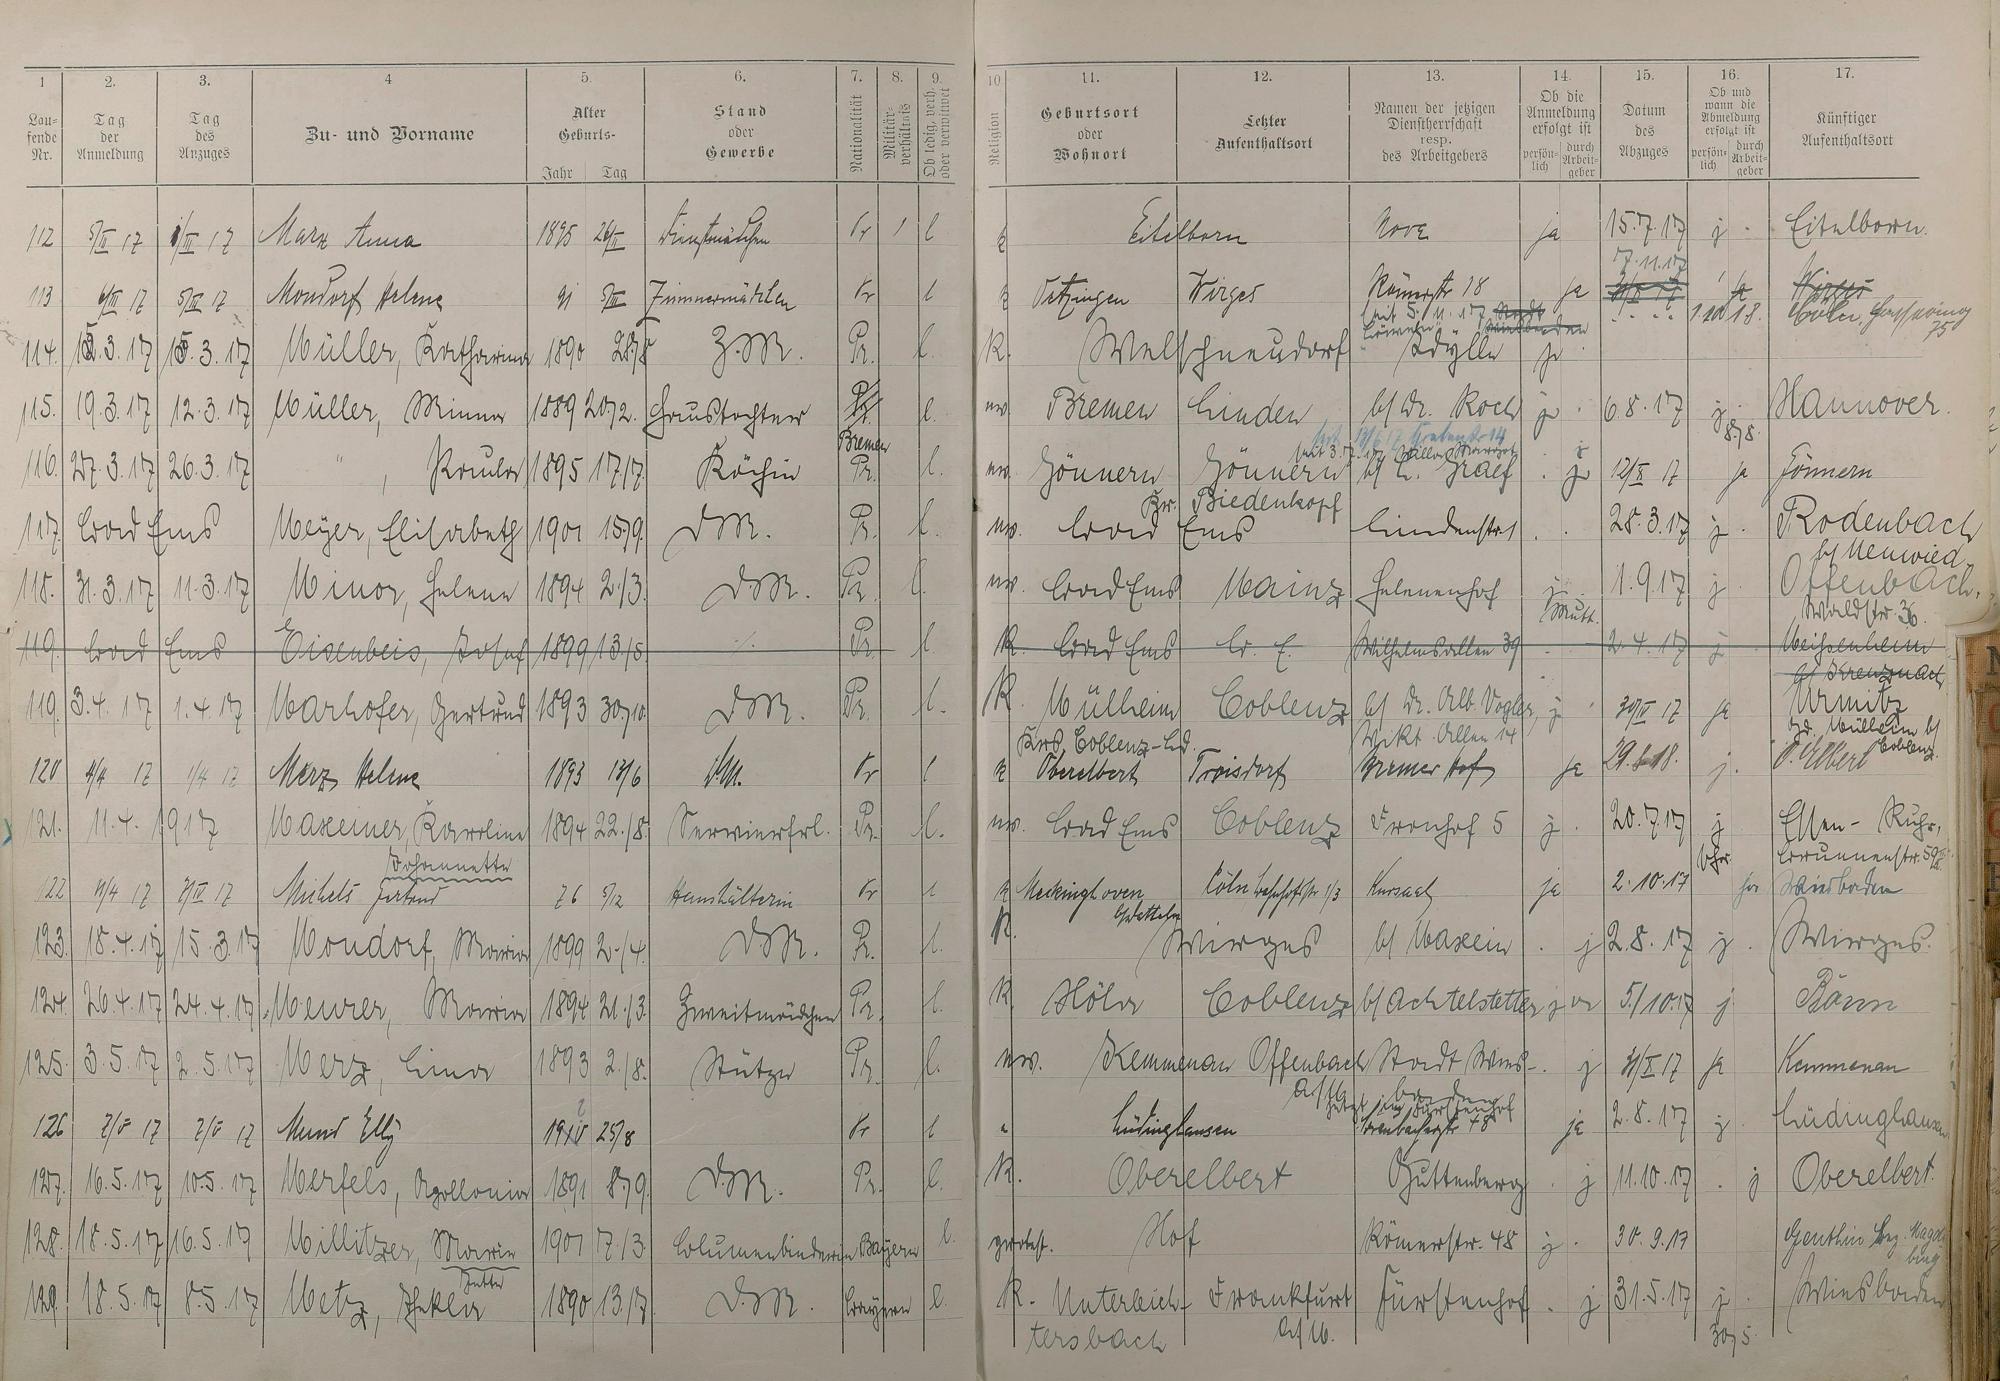 1 2. 3. 4 5. 6. 7. 8. 9. 10 11. 12. 13. 14. 15. 16. 17.
Laufende Nr. Tag der Anmeldung Tag des Anzuges Zu- und Vorname Alter Geburts- Jahr Tag Stand oder Gewerbe Nationalität Militärverhältnis Ob ledig, verh. oder verwitwet Religion Geburtsort oder Wohnort Letzter Aufenthaltsort Namen der jetzigen Dienstherrschaft resp. des Arbeitgebers Ob die Anmeldung erfolgt ist persönlich durch Arbeitgeber Datum des Abzuges Ob und wann die Abmeldung erfolgt ist persönlich durch Arbeitgeber Künftiger Aufenthaltsort
112 5/III 17 1/III 17 Marx Anna 1895 26/II Dienstmädchen Pr l k Eitelborn Nove ja 15.7.17 j. Eitelborn.
17.11.17
113 6/III 17 5/III 17 Mondorf Helene 91 5/III Zimmermädchen Pr l k Wirges Römerstr 18 ja ja Wirges
Cöln,
75
114. 15.3.17 15.3.17 Müller, Katharina 1890 28/8 Z.M. Pr. l. K. Welschneudorf Idylle ja
115. 19.3.17 12.3.17 Müller, Minna 1889 20/2. Haustochter Pr. l. ev. Bremen Linden b/ Dr. Koch j. 6.8.17 j. Hannover.
Bremen 8/8.
116. 27.3.17 26.3.17 " , Paula 1895 17/7. Köchin Pr. l. ev. Gönnern Gönnern b/ Graef j. 12/X 17 ja Gönnern
Kr. Biedenkopf
117. Bad Ems Meyer, Elisabeth 1901 15/9. D.M. Pr. l. ev. Bad Ems Lindenstr. 28.3.17 j. Rodenbach
b/ Neuwied.
118. 31.3.17 11.3.17 Minor, Helene 1894 2./3. D.M. Pr. l. ev. Bad Ems Mainz Helenenhof j. 1.9.17 j Offenbach.
Mutt. Waldstr. 36.
119. Bad Ems Eisenbeis, Josef 1899 13/5. Pr. l. K. Bad Ems B. E. Wilhelmsallee 39 2.4.17 j Meisenheim
b/ Kreuznach
119. 3.4.17 1.4.17 Marhofer, Gertrud 1893 30/10. D.M. Pr. l. K. Mülheim Coblenz b/ Dr. Alb. Vogler, j 30/IV 17 ja Urmitz
Krs. Coblenz-Ld. Vikt. Allee 14 Mülheim b/ Coblenz.
120 4/4 17 1/4 17 Merz Helene 1893 13/6 D.M. Pr l k Oberelbert Troisdorf Bremer Hof ja 29.8.18. j. O. Elbert
121. 11.4.1917 Maxeiner, Karoline 1894 22./8. Servierfrl. Pr. l. ev. Bad Ems Coblenz Fronhof 5 j. 20.7.17 j Essen-Ruhr,
Johannette Brunnenstr. 59
122 4/4 17 Michels Gertrud 76 5/12 Haushälterin Pr l k Meckinghoven Cöln, Bahnhofstr 1/3 Kursaal ja 2.10.17 ja Wiesbaden
b/ Datteln
123. 18.4.17 15.3.17 Mondorf, Maria 1899 2./4. D.M. Pr. l. K. Wirges b/ Maxein . j 2.8.17 j. Wirges.
124. 26.4.17 24.4.17. Meurer, Maria 1894 21./3. Zweitmädchen Pr. l. K. Höhr Coblenz b/ Achtelstetter ja 5./10.17 j Bonn
125. 3.5.17 2.5.17 Merz, Lina 1893 2./8. Stütze Pr. l. ev. Kemmenau Offenbach Stadt Wies- . j 31/X 17 ja Kemmenau
a/M. baden
jetzt im Fürstenhof
126 7/V 17 7/V 17 Mund Elly 25/8 Pr l " Lüdinghausen 48 ja 2.8.17 j. Lüdinghausen
127. 16.5.17 10.5.17 Merfels, Apollonia 1891 8./9. D.M. Pr. l. K. Oberelbert Guttenberg . j 11.10.17 . j Oberelbert.
128. 18.5.17 16.5.17 Millitzer, Marie 1901 7./3. Blumenbinderin Bayern l. protest. Hof Römerstr. 48 j. 30.9.17 Genthin Bez. Magdeburg
Jette
129. 18.5.17 8.5.17 Metz, Thekla 1890 13./7. D.M. Bayern l. K. Unterleich- Frankfurt Fürstenhof . j 31.5.17 j Wiesbaden
tersbach a/M. 30/5.